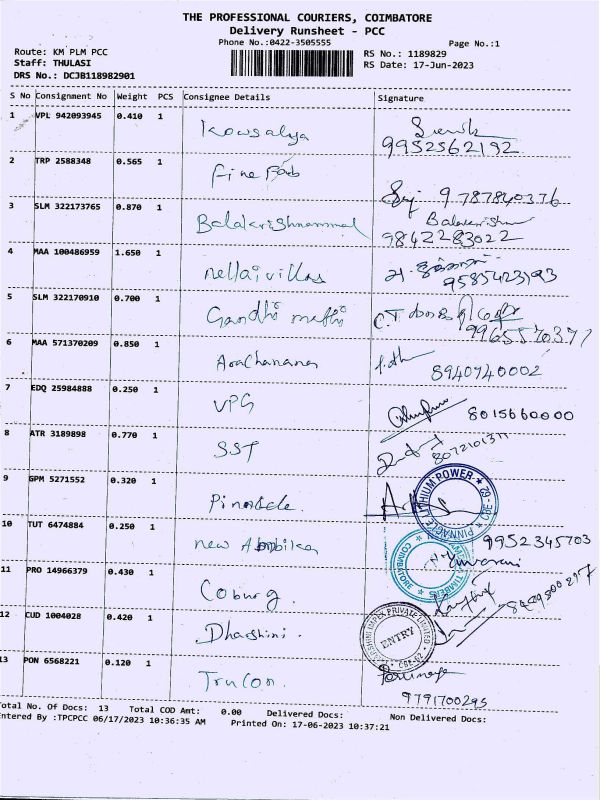 THE PROFESSIONAL COURIERS, COIMBATORE
Delivery Runsheet - PCC
Phone No.:0422-3505555 Page No.:1
Route: KM PLM PCC RS No.: 1189829
Staff: THULASI RS Date: 17-Jun-2023
DRS No.: DCJB118982901
S No Consignment No Weight PCS Consignee Details Signature
1 VPL 942093945 0.410 1 Kowsalya
9952562192
2 TRP 2588348 0.565 1 fine Fab
9787840376
3 SLM 322173765 0.870 1 Balakrishnammal Balakrishn
9842283022
4 MAA 100486959 1.650 1 nellaivillas
9585423193
5 SLM 322170910 0.700 1 Gandhi mathi C.T.
9965570377
6 MAA 571370209 0.850 1 8940740002
7 EDQ 25984888 0.250 1 VPG 8015660000
8 ATR 3189898 0.770 1 SST 8072101311
9 GPM 5271552 0.320 1 Pinnacle.
PINNACLE LITHIUM POWER CBE - 29
10 TUT 6474884 0.250 1 new Ambika 9952345703
Yuvarani
TIMBERS COIMBATORE
11 PRO 14966379 0.430 1 Coburg.
12 CUD 1004028 0.420 1 Dharshini.
DHARSHINI IMPEX PRIVATE LIMITED ENTRY
13 PON 6568221 0.120 1 Trucon.
9791700295
Total No. Of Docs: 13 Total COD Amt: 0.00 Delivered Docs: Non Delivered Docs:
Entered By :TPCPCC 06/17/2023 10:36:35 AM Printed On: 17-06-2023 10:37:21